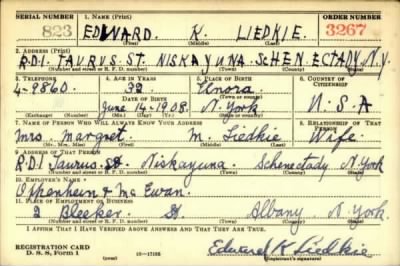 SERIAL NUMBER 1. NAME (Print) ORDER NUMBER
823 EDWARD. K. LIEDKIE. 3267
(First) (Middle) (Last)
2. ADDRESS (Print)
R.D.1. TAURUS. ST. NISKAYUNA. SCHENECTADY. N.Y.
(Number and street or R. F. D. number) (Town) (County) (State)
3. TELEPHONE 4. AGE IN YEARS 5. PLACE OF BIRTH 6. COUNTRY OF CITIZENSHIP
4-9860. 32 Unora.
DATE OF BIRTH
June 14 - 1908. N. York U.S.A
(Mo.) (Day) (Yr.)
7. NAME OF PERSON WHO WILL ALWAYS KNOW YOUR ADDRESS 8. RELATIONSHIP OF THAT PERSON
Mrs. Margret. M. Liedkie Wife.
(Mr., Mrs., Miss) (First) (Middle) (Last)
9. ADDRESS OF THAT PERSON
R.D.1 Taurus. St. Niskayuna Schenectady N. York
(Number and street or R. F. D. number) (Town) (County) (State)
10. EMPLOYER'S NAME
Oppenheim & McEwan.
11. PLACE OF EMPLOYMENT OR BUSINESS
2 Bleeker St Albany. N. York.
(Number and street or R. F. D. number) (Town) (County) (State)
I AFFIRM THAT I HAVE VERIFIED ABOVE ANSWERS AND THAT THEY ARE TRUE.
REGISTRATION CARD
D. S. S. Form 1 16—17105 Edward K Liedkie
(Registrant's signature)